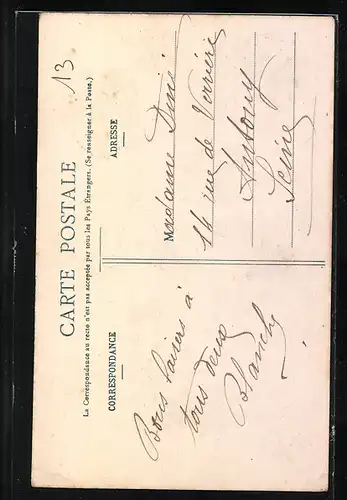 13
CARTE POSTALE
La Correspondance au recto n'est pas acceptée par tous les Pays Étrangers. (Se renseigner à la Poste.)
CORRESPONDANCE
Bons baisers à
tous deux
Blanche
ADRESSE
Madame
14 rue de Verrières
Antony
Seine